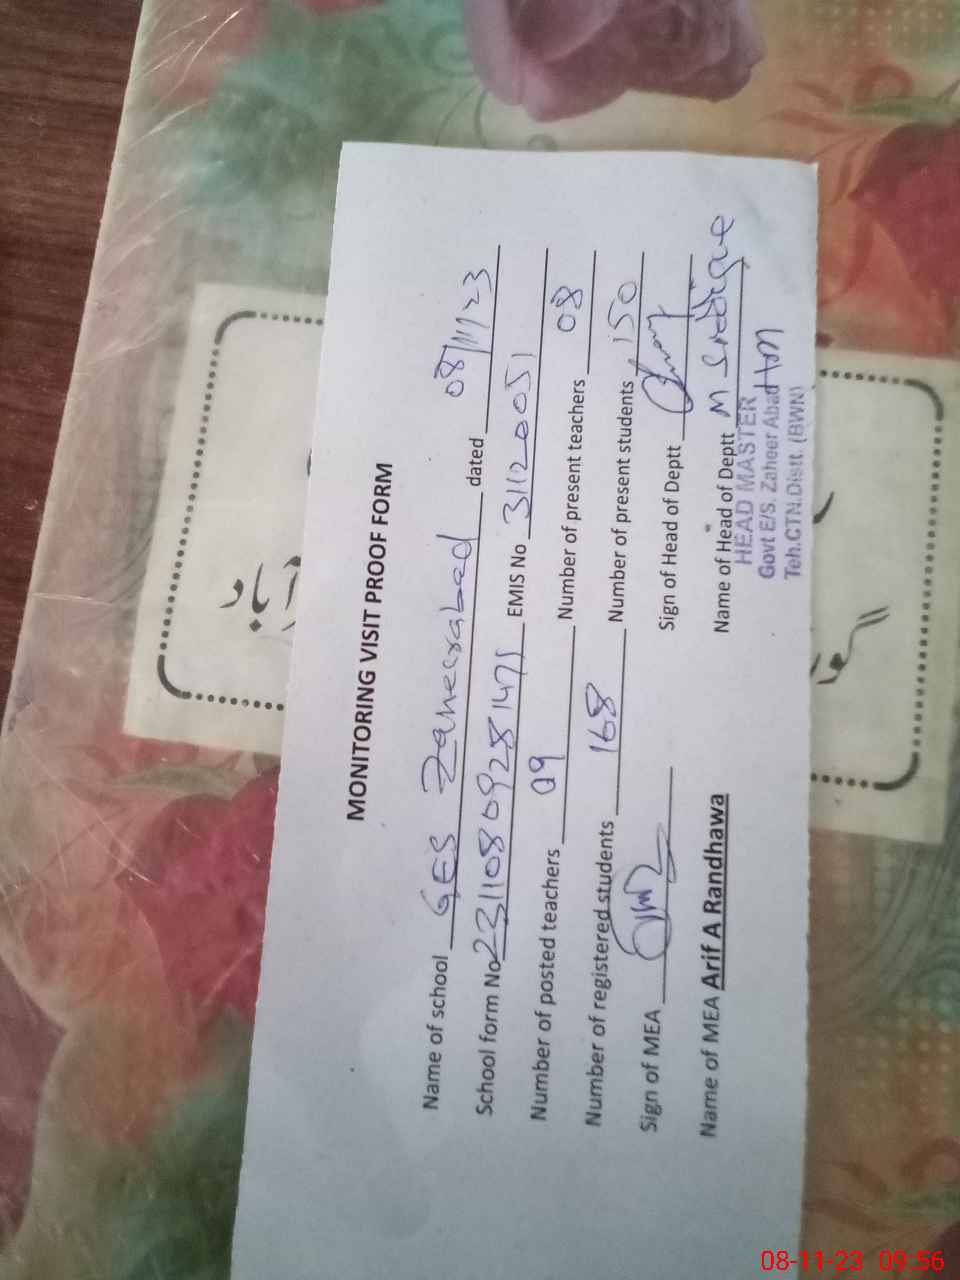 MONITORING VISIT PROOF FORM
Name of school GES Zaheerabad dated 08/11/23
School form No 23110809281475 EMIS No 31120051
Number of posted teachers 09 Number of present teachers 08
Number of registered students 168 Number of present students 150
Sign of MEA Sign of Head of Deptt
Name of MEA Arif A Randhawa Name of Head of Deptt M Siddique
HEAD MASTER HM
Govt E/S. Zaheer Abad
Teh.CTN.Distt. (BWN)
08-11-23 09:56